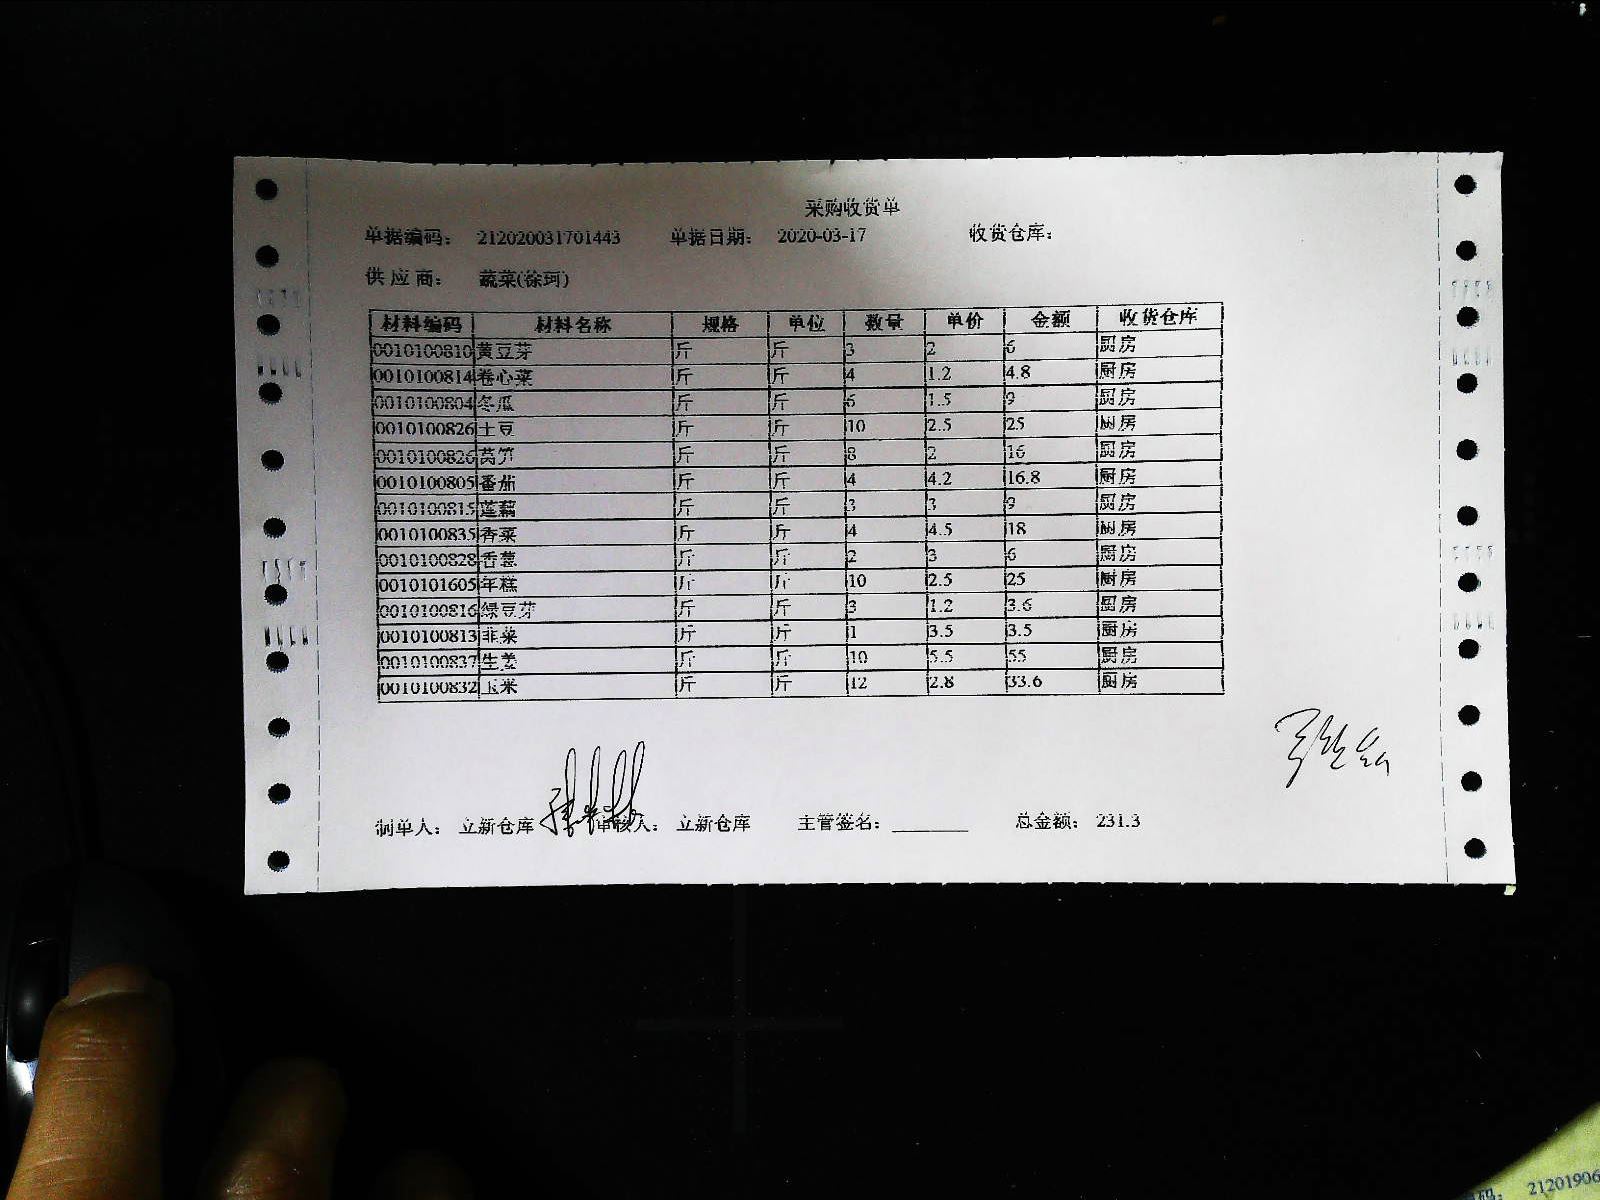 采购收货单
单据编码： 212020031701443 单据日期： 2020-03-17 收货仓库：
供 应 商： 蔬菜(徐珂)
材料编码 材料名称 规格 单位 数量 单价 金额 收货仓库
0010100810 黄豆芽 斤 斤 3 2 6 厨房
0010100814 卷心菜 斤 斤 4 1.2 4.8 厨房
0010100804 冬瓜 斤 斤 6 1.5 9 厨房
0010100826 土豆 斤 斤 10 2.5 25 厨房
0010100826 莴笋 斤 斤 8 2 16 厨房
0010100805 番茄 斤 斤 4 4.2 16.8 厨房
0010100815 莲藕 斤 斤 3 3 9 厨房
0010100835 香菜 斤 斤 4 4.5 18 厨房
0010100828 香葱 斤 斤 2 3 6 厨房
0010101605 年糕 斤 斤 10 2.5 25 厨房
0010100816 绿豆芽 斤 斤 3 1.2 3.6 厨房
0010100813 韭菜 斤 斤 1 3.5 3.5 厨房
0010100837 生姜 斤 斤 10 5.5 55 厨房
0010100832 玉米 斤 斤 12 2.8 33.6 厨房
制单人： 立新仓库 审核人： 立新仓库 主管签名：________ 总金额： 231.3
码： 21201906